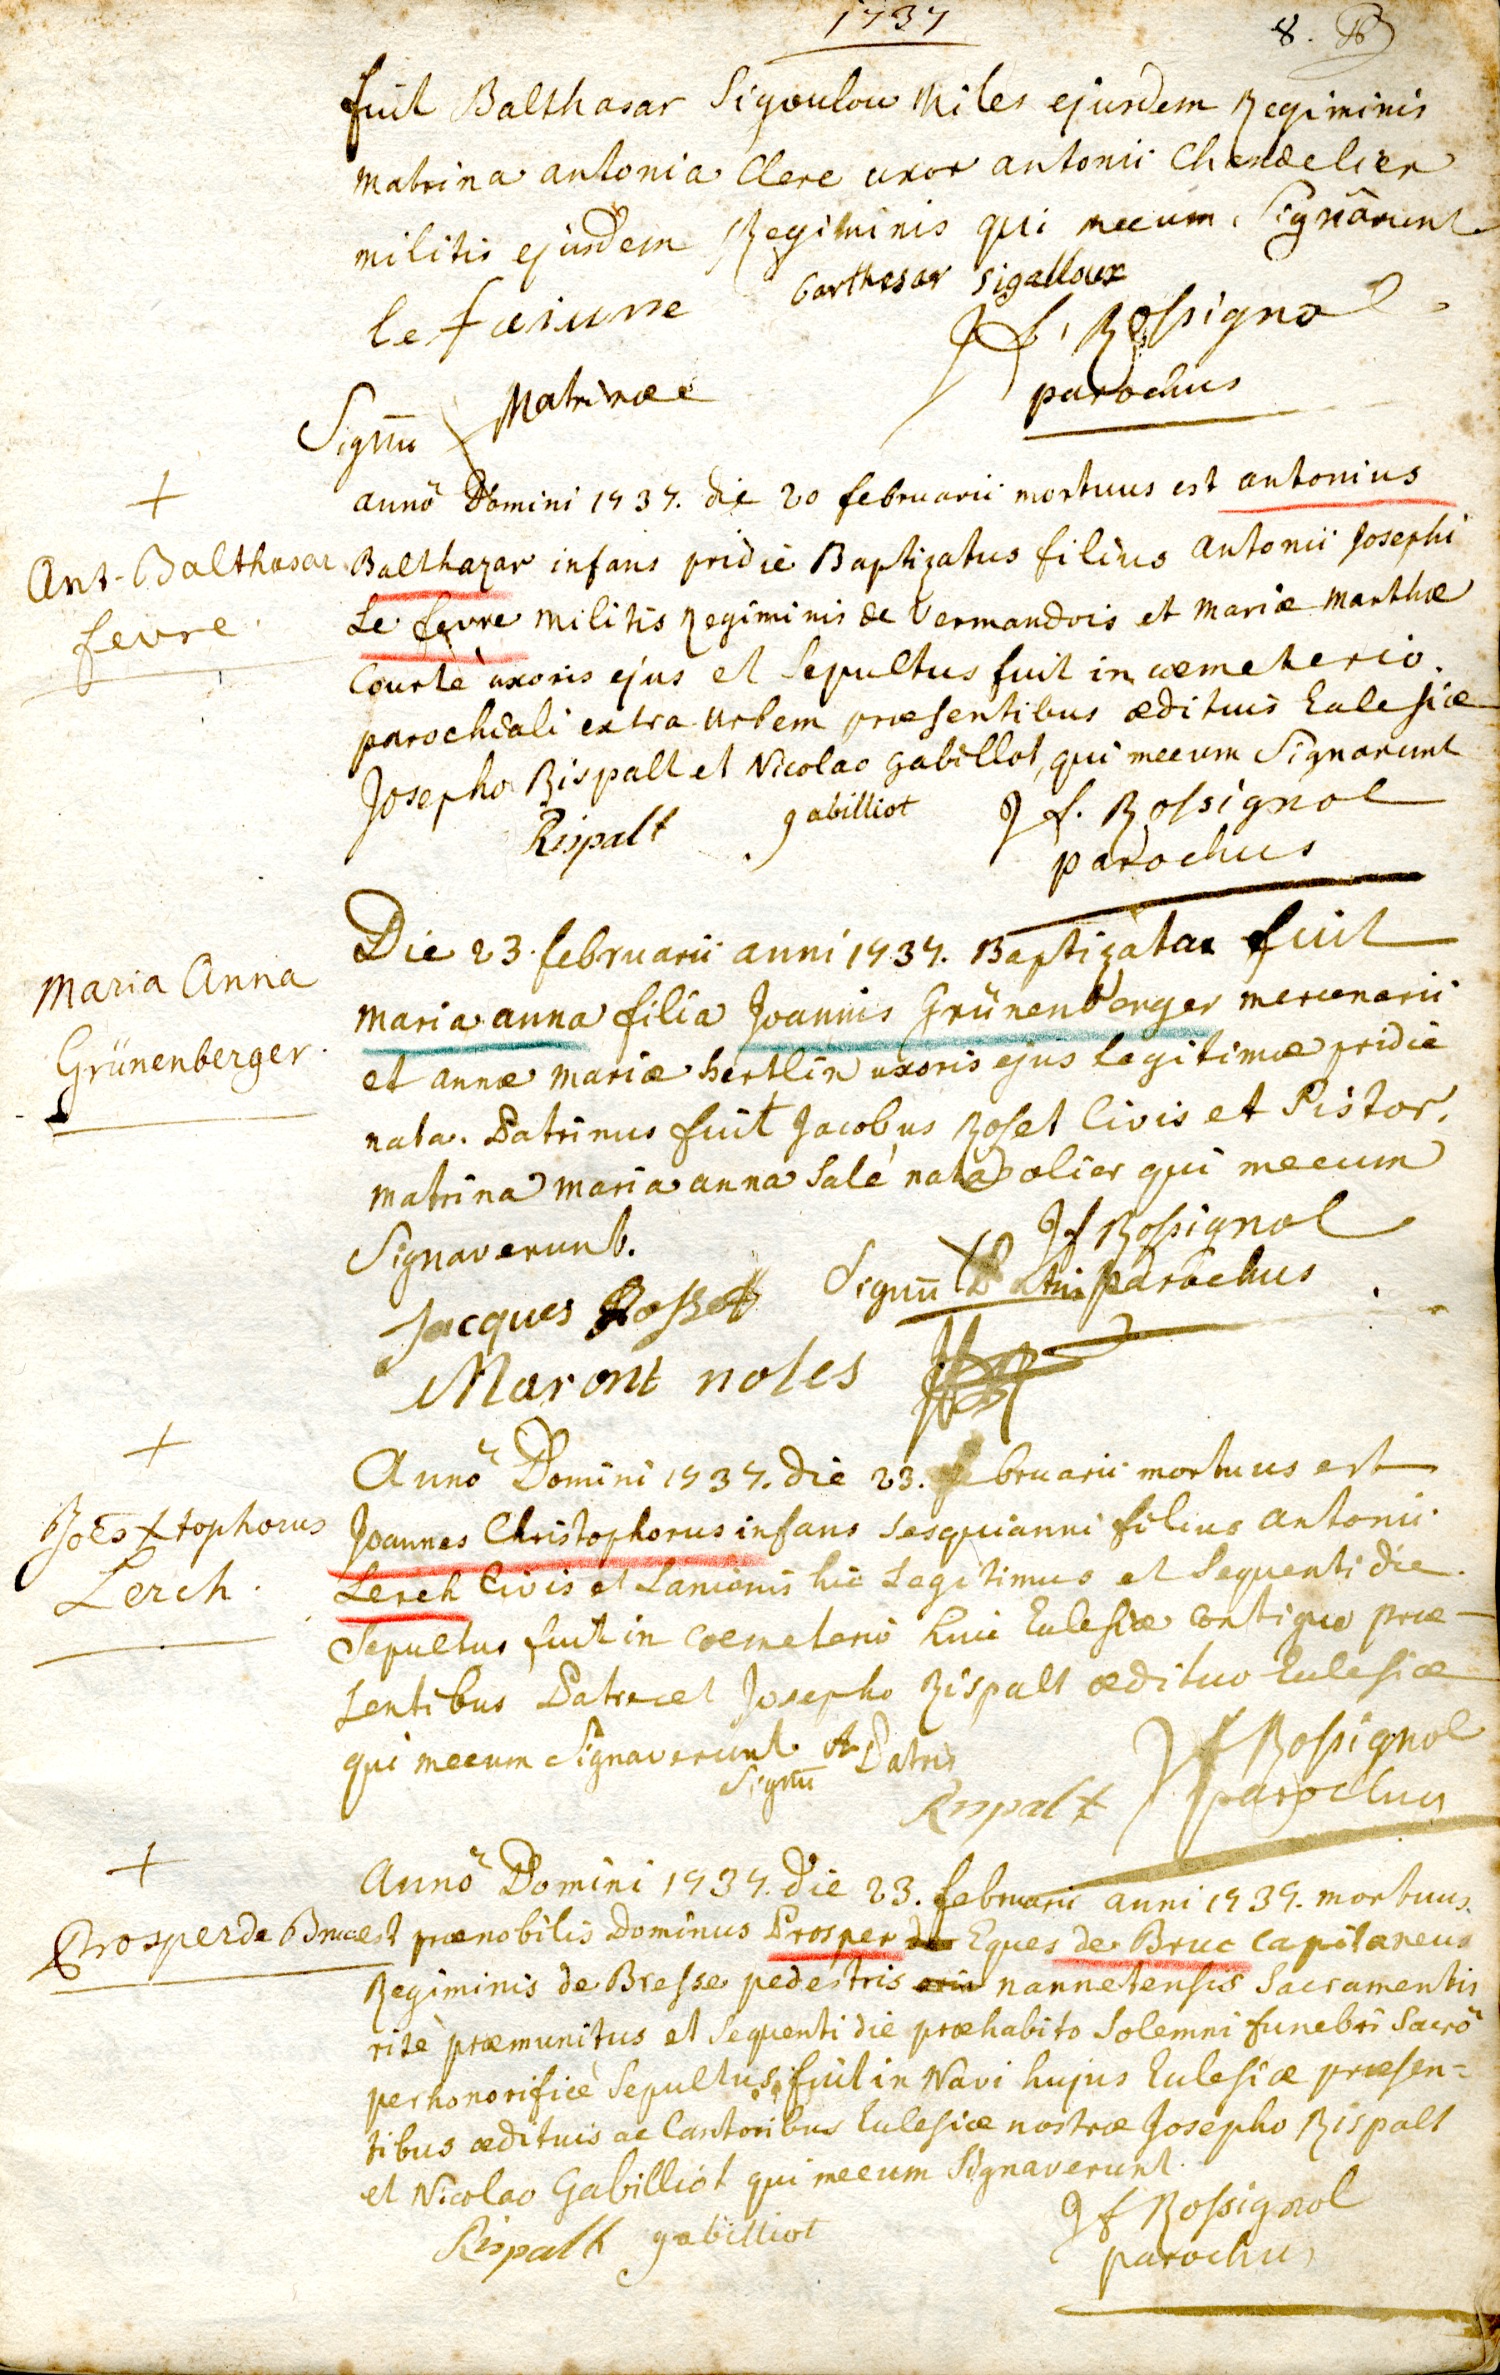 1737
8.
fuit Balthasar Sigoulou Miles ejusdem Regiminis
Matrina antonia Clere uxor antonii Chandelier
militis ejusdem Regiminis qui mecum Signarunt
barthesar sigalloux
le faiurre
J f. Rossignol
parochus
Signū Matrinae
anno Domini 1737. die 20 februarii mortuus est antonius
Ant-Balthasar
fevre.
Balthazar infans pridie Baptizatus filius antonii Josephi
Le fevre Militis Regiminis de Vermandois et Mariæ Marthæ
Courte uxoris ejus et Sepultus fuit in cœmeterio
parochiali extra urbem præsentibus ædituis Eclesiæ
Josepho Rispalt et Nicolao Gabillot, qui mecum Signarunt
Rispalt gabilliot J f. Rossignol
parochus
Die 23. februarii anni 1737. Baptizata fuit
Maria Anna
Grünenberger.
Maria anna filia Joannis Grünenberger mercenarii
et annæ Mariæ hertlin uxoris ejus legitimæ pridie
nata. Patrinus fuit Jacobus Roset Civis et Pistor.
Matrina Maria anna Salé nata olier qui mecum
Signaverunt.
J f Rossignol
parochus
Signū Patris
Jacques Rosset
Maront noles
Anno Domini 1737. die 23. februarii mortuus est
Joēs Xtophorus
Lerch.
Joannes Christophorus infans sesquianni filius antonii
Lerch Civis et Lanionis hic Legitimus et Sequenti die
Sepultus fuit in Coemeterio huic Eclesiæ Contiguo præ-
sentibus Patre et Josepho Rispalt ædituo Eclesiæ
qui mecum Signaverunt.
Signū Patris
Rispalt
J f Rossignol
parochus
Anno Domini 1737. Die 23. februarii anni 1737. mortuus
Prosper de Bruc
est prænobilis Dominus Prosper Eques de Bruc Capitaneus
Regiminis de Bresse pedestris nannetensis Sacramentis
rite præmunitus et Sequenti die præhabito Solemni funebri Sacro
perhonorifice Sepultus fuit in Navi hujus Eclesiæ præsen=
tibus ædituis ac Cantoribus Eclesiæ nostræ Josepho Rispalt
et Nicolao Gabilliot qui mecum Signaverunt.
Rispalt gabilliot
J f Rossignol
parochus